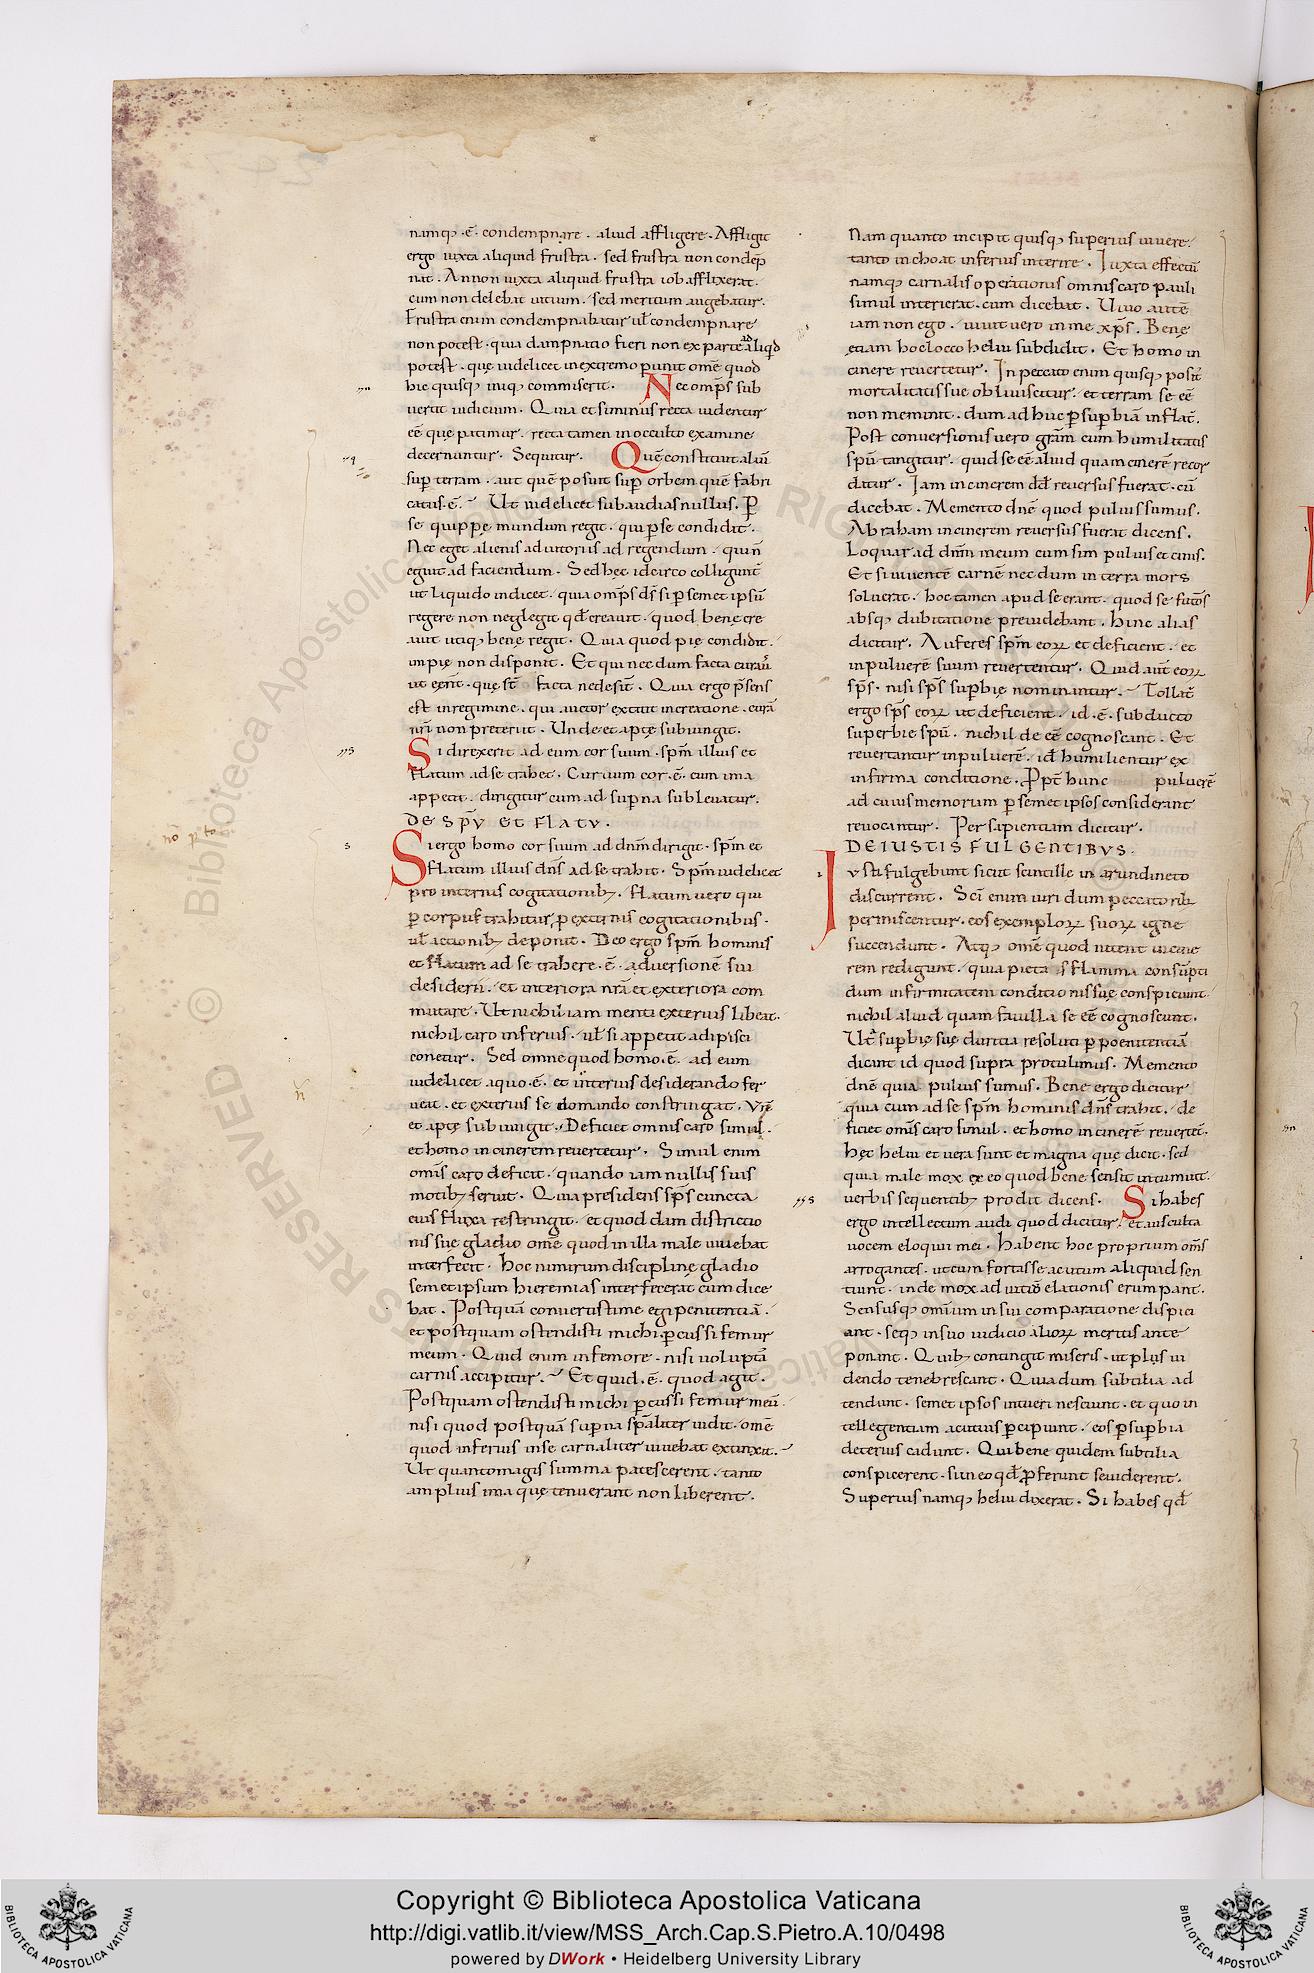 namq; ·ē· condempnare · aliud affligere · Affligit
ergo iuxta aliquid frustra · sed frustra non condēp
nat · An non iuxta aliquid frustra iob afflixerat ·
cum non delebat uitium · sed meritum augebatur ·
Frustra enim condempnabatur uel condempnare
non potest · quia dampnatio fieri non ex parte ad aliqd
potest · quę uidelicet in extremo punit omē quod
hic quisq; iniq; commiserit · Nec omps sub
uertit iudicium · Quia et si minus recta uidentur
eē quę patimur · recta tamen in occulto examine
decernuntur · Sequitur · Quē constituit aliū
sup terram · aut quē posuit sup orbem quē fabri
catus ·ē· Ut uidelicet subaudias nullus · P
se quippe mundum regit · qui p se condidit ·
Nec eget alienis adiutoriis ad regendum · qui n̄
eguit ad faciendum · Sed hęc idcirco colligunt̄
ut liquido indicet · quia omps ds si p semet ipsū
regere non neglegit qđ creauit · quod bene cre
auit utiq; bene regit · Quia quod pię condidit ·
impię non disponit · Et qui nec dum facta curau
ut eēnt · quę st facta nedesīt · Quia ergo p̄sens
est in regimine · qui auctor extitit in creatione · curā
nrī non preteriit · Unde et aptę subiungit ·
Si direxerit ad eum cor suum · spm̄ illius et
flatum ad se trahet · Curuum cor ·ē· cum ima
appetit · dirigitur cum ad supna subleuatur ·
DE SPŪ ET FLATU ·
Si ergo homo cor suum ad dnm̄ dirigit · spm̄ et
flatum illius dns̄ ad se trahit · Spm̄ uidelicet
pro internis cogitationib; · Flatum uero qui
p corpus trahitur p externis cogitationibus ·
uel actionib; deponit · Deo ergo spm̄ hominis
et flatum ad se trahere ·ē· aduersionē sui
desiderii · et interiora nrā et exteriora com
mutare · Ut nichil iam menti exterius libeat ·
nichil caro inferius · uel si appetit adipisci
conetur · Sed omne quod homo ·ē· ad eum
uidelicet a quo ·ē· et interius desiderando fer
ueat · et exterius se domando constringat · Vn̄
et aptę subiungit · Deficiet omnis caro simul ·
et homo in cinerem reuertetur · Simul enim
omīs caro deficit · quando iam nullis suis
motib; seruit · Quia presidens sps̄ cuncta
eius fluxa restringit · et quod dam districtio
nis suę gladio omē quod in illa male uiuebat
interfecit · Hoc nimirum disciplinę gladio
semet ipsum hieremias interfecerat cum dice
bat · Postquā conuertisti me egi penitentiā ·
et postquam ostendisti michi pcussi femur
meum · Quid enim in femore · nisi uoluptā
carnis accipitur · Et quid ·ē· quod agit ·
Postquam ostendisti michi pcussi femur meū ·
nisi quod postquā supna spāliter uidit · omē
quod inferius in se carnaliter uiuebat extinxit ·
Ut quanto magis summa patescerent · tanto
amplius ima quę tenuerant non liberent ·
Nam quanto incipit quisq; superius uiuere ·
tanto inchoat inferius interire · Iuxta effectū
namq; carnalis operationis omnis caro pauli
simul interierat · cum dicebat · Uiuo autē
iam non ego · uiuit uero in me xps̄ · Bene
etiam hoc loco heliu subdidit · Et homo in
cinere reuertetur · In peccato enim quisq; posit
mortalitatis sue obliuiscitur · et terram se eē
non meminit · dum ad huc p supbiā inflat̄ ·
Post conuersionis uero gram̄ cum humilitatis
spū tangitur · quid se eē aliud quam cinerē recor
ditur · Iam in cinerem dđ reuersus fuerat · cū
dicebat · Memento dnē quod puluis sumus ·
Abraham in cinerem reuersus fuerat dicens ·
Loquar ad dnm̄ meum cum sim puluis et cinis ·
Et si uiuentē carnē nec dum in terra mors
soluerat · hoc tamen apud se erant · quod se futos
absq; dubitatione preuidebant · Hinc alias
dicitur · Auferes spm̄ eoꝝ et deficient · et
in puluerē suum reuertentur · Quid aūt eoꝝ
sps̄ · nisi sps̄ supbię nominantur · Tollat̄
ergo sps̄ eoꝝ ut deficient · id ·ē· subducto
superbie spū · nichil de eē cognoscant · Et
reuertantur in puluerē · idē humilientur ex
infirma conditione · Ppt hunc pulucrē
ad cuius memoriam p semet ipsos considerant
reuocantur · Per sapientiam dicitur ·
DE IUSTIS FULGENTIBUS ·
Iusti fulgebunt sicut scintille in arundineto
discurrent · Scī enim iuri dum peccatorib;
permiscentur · eos exemploꝝ suoꝝ igne
succendunt · Atq; omē quod nitent in cine
rem redigunt · quia pietatis flamma consūpti
dum infirmitatem conditionis suę conspiciunt ·
nichil aliud quam fauilla se eē cognoscunt ·
Ut supbię suę duritia resoluti p poenitentiā
dicant id quod supra protulimus · Memento
dnē quia puluis sumus · Bene ergo dicitur
quia cum ad se spm̄ hominis dns̄ trahit · de
ficiet omīs caro simul · et homo in cinerē reuertet̄ ·
Hęc heliu et uera sunt et magna quę dicit · sed
quia male mox ex eo quod bene sensit intumuit ·
uerbis sequentib; prodit dicens · Si habes
ergo intellectum audi quod dicitur · et ausculta
uocem eloquii mei · Habent hoc proprium oms̄
arrogantes · ut cum fortasse acutum aliquid sen
tiunt · inde mox ad uitiū elationis erumpant ·
Sensusq; omnium in sui comparatione dispici
ant · seq; in suo iudicio alioꝝ meritis ante
ponant · Quib; contingit miseris · ut plus ui
dendo tenebrescant · Quia dum subtilia ad
tendunt · semet ipsos intueri nesciunt · et quo in
tellegentiam acutius pcipiunt · eo p supbia
deterius cadunt · Qui bene quidem subtilia
conspicerent · si in eo qđ pferunt se uiderent ·
Superius namq; heliu dixerat · Si habes qđ
Copyright © Biblioteca Apostolica Vaticana
http://digi.vatlib.it/view/MSS_Arch.Cap.S.Pietro.A.10/0498
powered by DWork • Heidelberg University Library